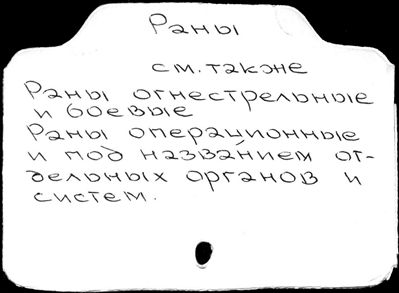 Раны
см. также
Раны огнестрельные
и боевые
Раны операционные
и под названием от-
дельных органов и
систем.